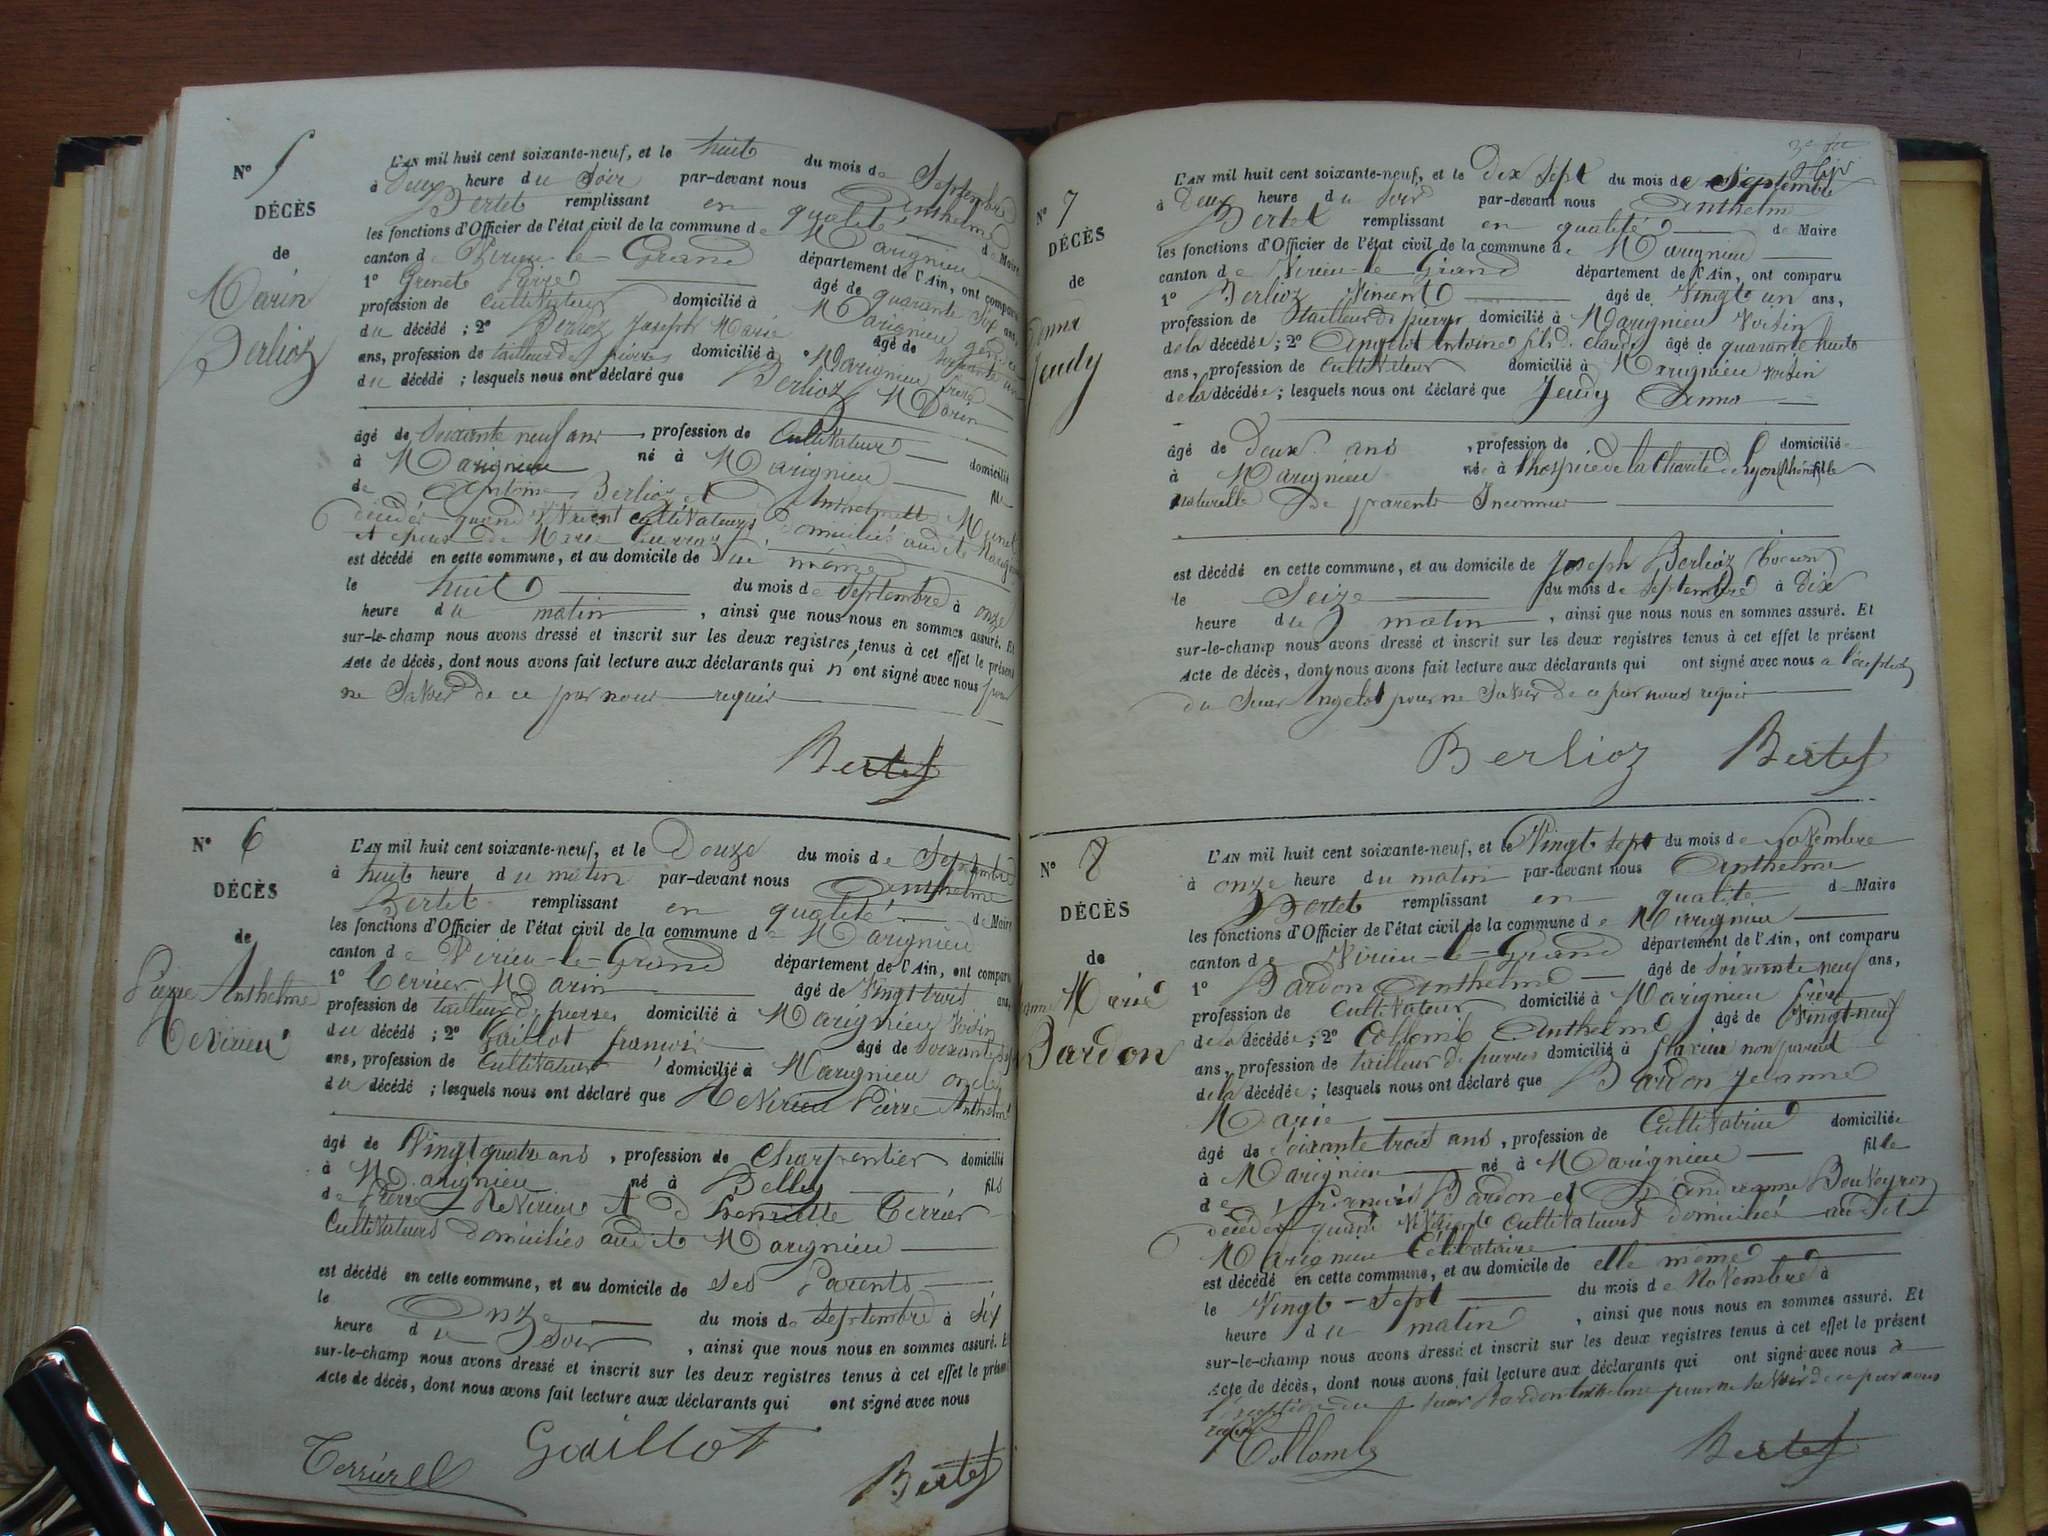 N° 5
DÉCÈS
de
Marin
Berlioz
L'AN mil huit cent soixante-neuf, et le huit du mois de Septembre
à Deux heure du Soir par-devant nous Anthelme
Bertet remplissant en qualité de Maire
les fonctions d'Officier de l'état civil de la commune de Marignieu
canton de Virieu-le-Grand département de l'Ain, ont comparu
1° Grenet Pierre âgé de quarante Six ans,
profession de Cultivateur domicilié à Marignieu
du décédé ; 2° Berlioz Joseph Marie âgé de
ans, profession de tailleur de pierres domicilié à Marignieu frère
du décédé ; lesquels nous ont déclaré que Berlioz Marin
âgé de Soixante neuf ans, profession de Cultivateur domicilié
à Marignieu né à Marignieu fils
de Antoine Berlioz et
décédés quand Vivient cultivateurs domiciliés audit Marignieu
et époux de Marie
est décédé en cette commune, et au domicile de lui même
le huit du mois de Septembre à onze
heure du matin, ainsi que nous nous en sommes assuré. Et
sur-le-champ nous avons dressé et inscrit sur les deux registres tenus à cet effet le présent
Acte de décès, dont nous avons fait lecture aux déclarants qui n'ont signé avec nous pour
ne Savoir de ce par nous requis
Bertet
N° 6
DÉCÈS
de
Pierre Anthelme
Revirieu
L'AN mil huit cent soixante-neuf, et le Douze du mois de Septembre
à huit heure du matin par-devant nous Anthelme
Bertet remplissant en qualité de Maire
les fonctions d'Officier de l'état civil de la commune de Marignieu
canton de Virieu-le-Grand département de l'Ain, ont comparu
1° Terrier Marin âgé de Vingt trois ans,
profession de tailleur de pierres domicilié à Marignieu Voisin
du décédé ; 2° Gaillot françois âgé de Soixante
ans, profession de Cultivateur domicilié à Marignieu oncle
du décédé ; lesquels nous ont déclaré que Revirieu Pierre Anthelme
âgé de Vingt quatre ans, profession de Charpentier domicilié
à Marignieu né à Belley fils
de Pierre Revirieu Et De Henriette Terrier
Cultivateurs domiciliés audit Marignieu
est décédé en cette commune, et au domicile de Ses Parents
le Onze du mois de Septembre à Six
heure du Soir, ainsi que nous nous en sommes assuré. Et
sur-le-champ nous avons dressé et inscrit sur les deux registres tenus à cet effet le présent
Acte de décès, dont nous avons fait lecture aux déclarants qui ont signé avec nous
Terrier Gaillot Bertet
N° 7
DÉCÈS
de
Anna
Jeudy
L'AN mil huit cent soixante-neuf, et le Dix Sept du mois de Septembre
à Deux heure du Soir par-devant nous Anthelme
Bertet remplissant en qualité de Maire
les fonctions d'Officier de l'état civil de la commune de Marignieu
canton de Virieu-le-Grand département de l'Ain, ont comparu
1° Berlioz Vincent âgé de Vingt un ans,
profession de tailleur de pierres domicilié à Marignieu Voisin
de la décédée ; 2° Angelot Antoine fils de Claude âgé de quarante huit
ans, profession de Cultivateur domicilié à Marignieu voisin
de la décédée ; lesquels nous ont déclaré que Jeudy Anna
âgé de Deux ans, profession de domicilié
à Marignieu née à l'hospice de la Charité de Lyon (Rhône) fille
naturelle de parents Inconnus
est décédé en cette commune, et au domicile de Joseph Berlioz
le Seize du mois de Septembre à Dix
heure du matin, ainsi que nous nous en sommes assuré. Et
sur-le-champ nous avons dressé et inscrit sur les deux registres tenus à cet effet le présent
Acte de décès, dont nous avons fait lecture aux déclarants qui ont signé avec nous a l'exception
du Sieur Angelot pour ne Savoir de ce par nous requis
Berlioz Bertet
N° 8
DÉCÈS
de
Jeanne Marie
Bardon
L'AN mil huit cent soixante-neuf, et le Vingt Sept du mois de Novembre
à onze heure du matin par-devant nous Anthelme
Bertet remplissant en qualité de Maire
les fonctions d'Officier de l'état civil de la commune de Marignieu
canton de Virieu-le-Grand département de l'Ain, ont comparu
1° Bardon Anthelme âgé de Soixante neuf ans,
profession de Cultivateur domicilié à Marignieu frère
de la décédée ; 2° Collomb Anthelme âgé de Vingt-neuf
ans, profession de tailleur de pierres domicilié à flaxieu non parent
de la décédée ; lesquels nous ont déclaré que Bardon Jeanne
Marie
âgé de Soixante trois ans, profession de Cultivatrice domiciliée
à Marignieu né à Marignieu fille
de françois Bardon et D'andréanne Bouveyron
décédés quand Vivient cultivateurs domiciliés audit
Marignieu Célibataire
est décédé en cette commune, et au domicile de elle même
le Vingt-Sept du mois de Novembre à
heure du matin, ainsi que nous nous en sommes assuré. Et
sur-le-champ nous avons dressé et inscrit sur les deux registres tenus à cet effet le présent
Acte de décès, dont nous avons fait lecture aux déclarants qui ont signé avec nous à
l'exception du Sieur Bardon Anthelme pour ne Savoir de ce par nous
requis
Collomb Bertet